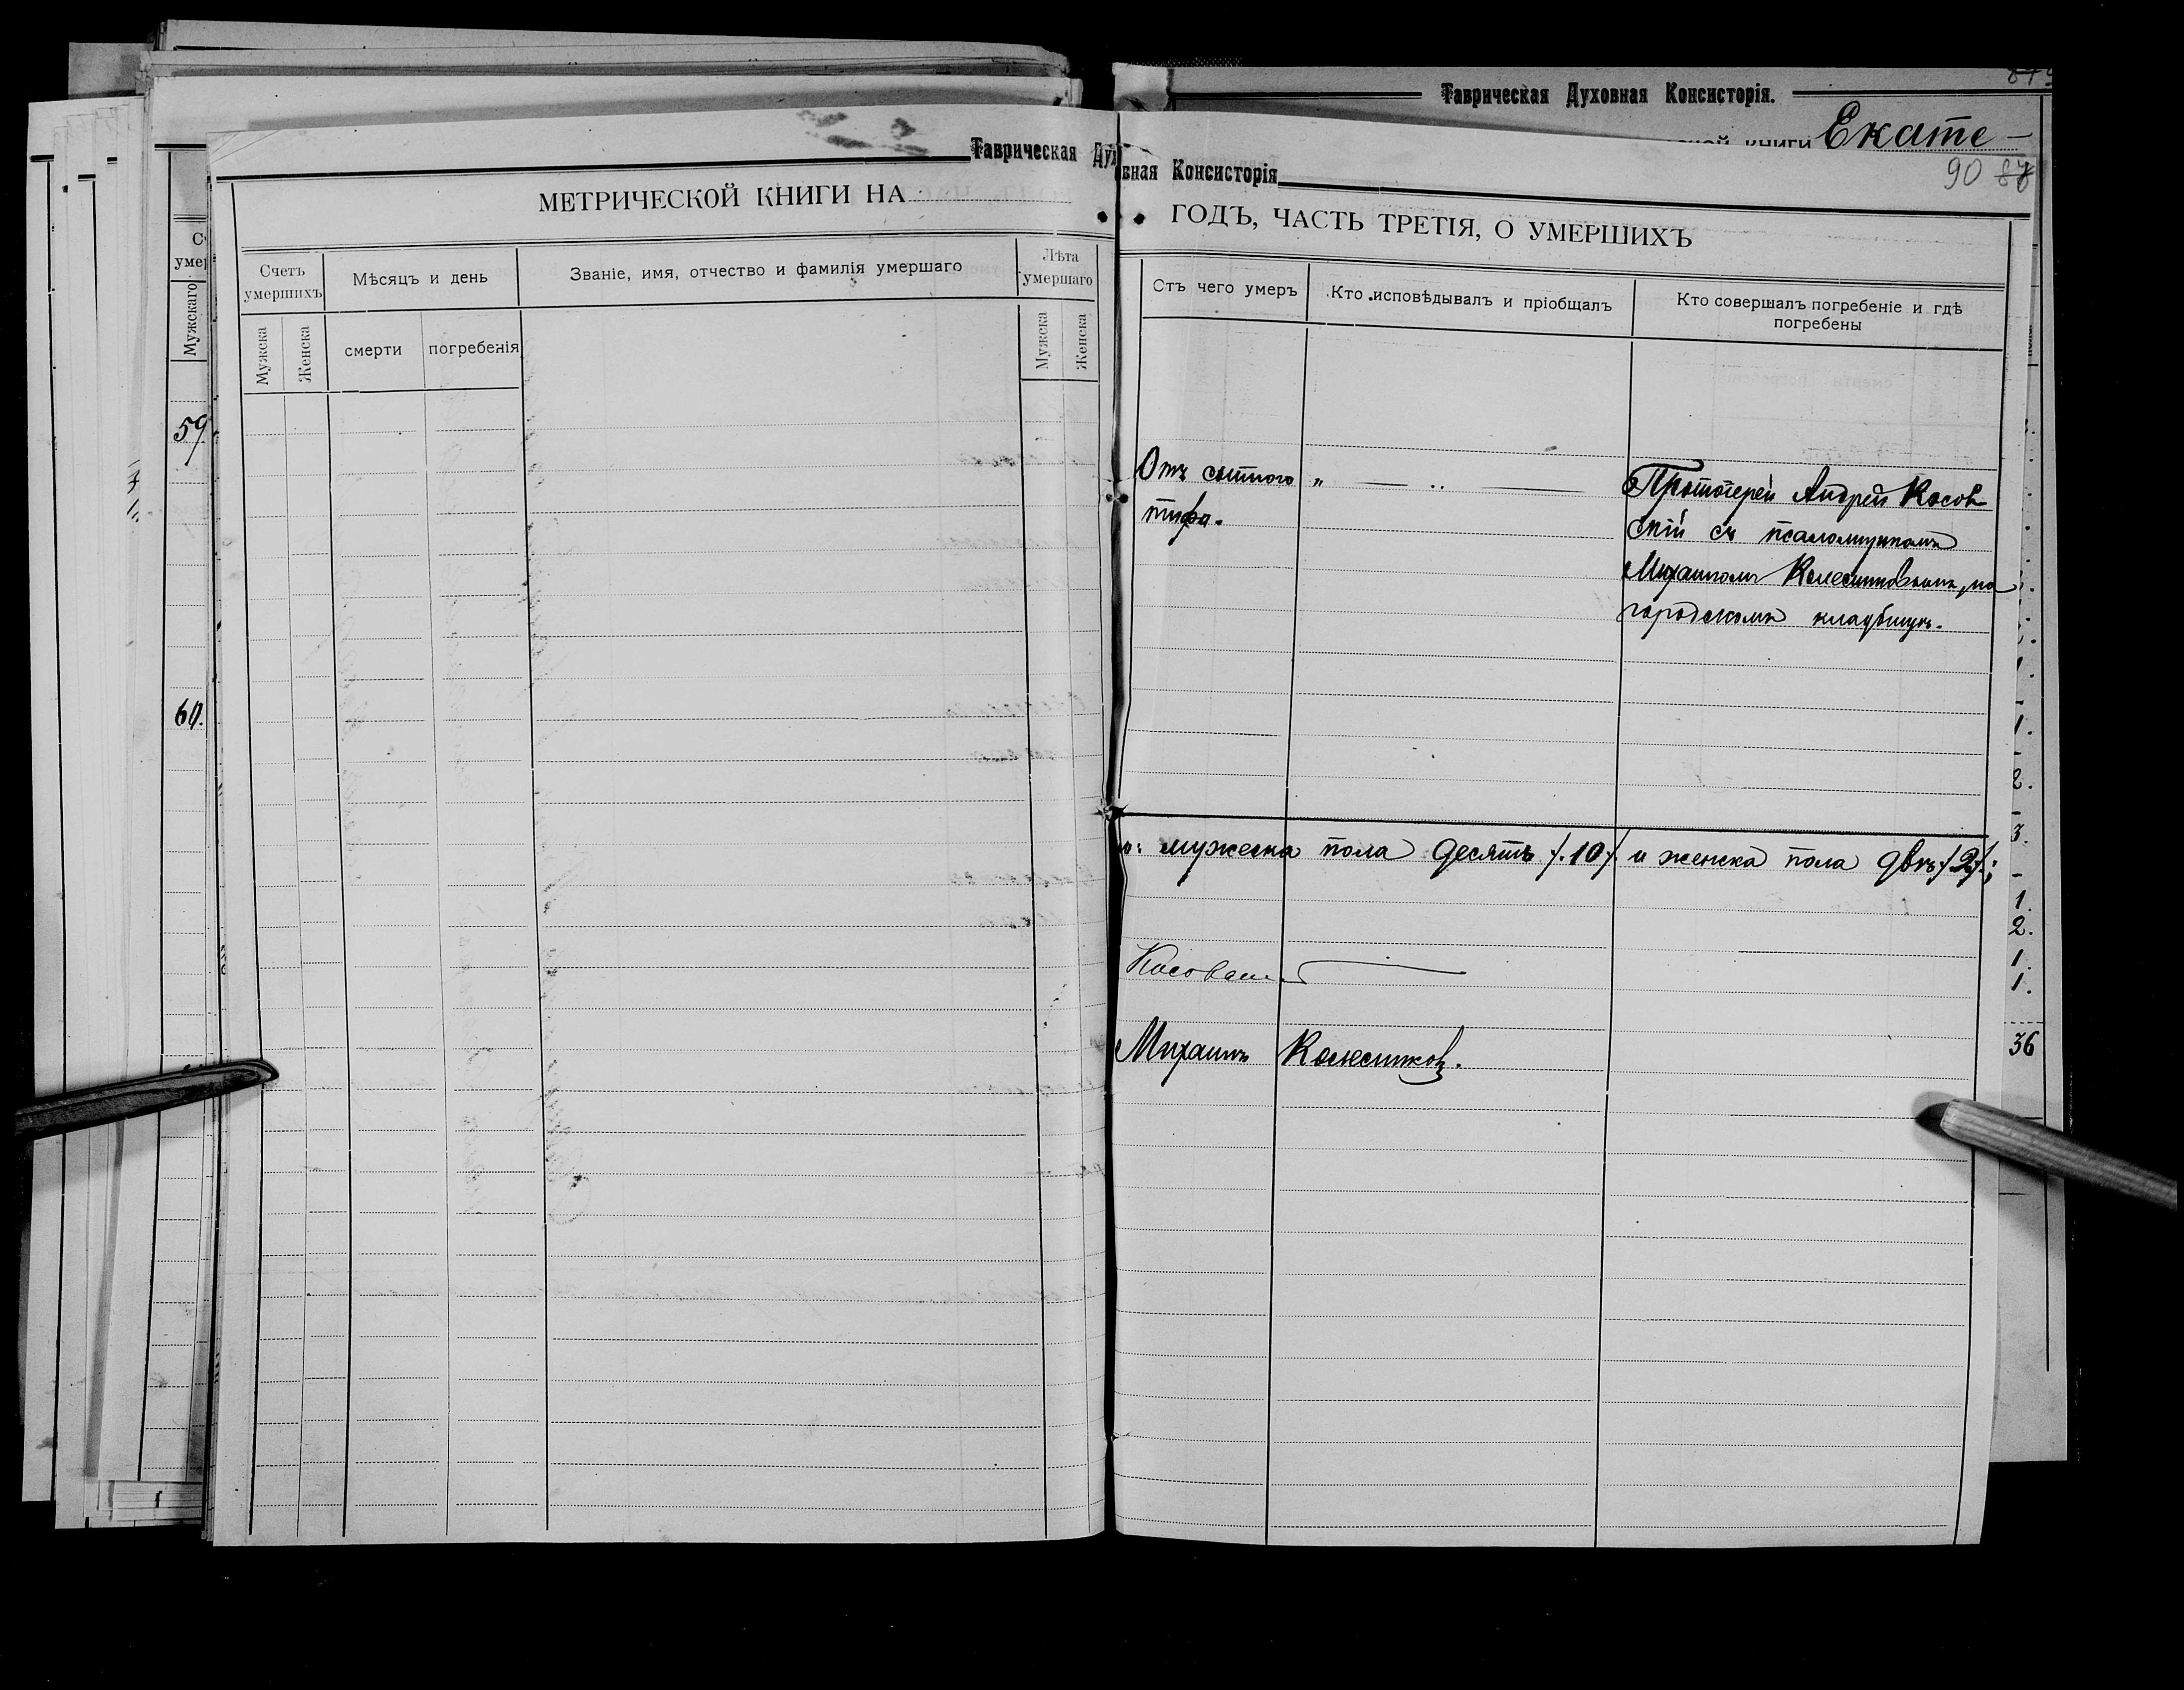 Таврическая Духовная Консисторія.
Екате-
Таврическая Дух
вная Консисторія
90 87
МЕТРИЧЕСКОЙ КНИГИ НА
ГОДЪ, ЧАСТЬ ТРЕТІЯ, О УМЕРШИХЪ
Счетъ умершихъ
Мѣсяцъ и день
Званіе, имя, отчество и фамилія умершаго
Лѣта умершаго
Мужска
Женска
смерти
погребенія
Мужска
Женска
Мужскаго
59.
60.
Отъ чего умеръ
Кто исповѣдывалъ и пріобщалъ
Кто совершалъ погребеніе и гдѣ
погребены
Отъ сыпного
тифа.
Протоіерей Андрей Косов
скій съ псаломщикомъ
Михаиломъ Колесниковымъ, на
городскомъ кладбищѣ.
мужеска пола десять /.10/. и женска пола двѣ /.2/.;
Михаилъ Колесниковъ.
2.
3.
1.
2.
1.
1.
36